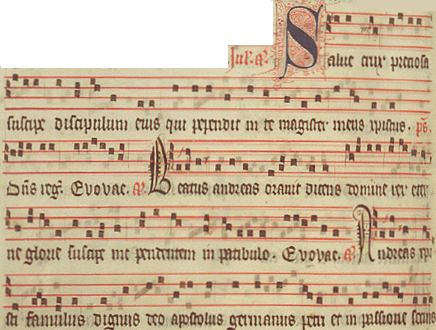 sup. a. Salve crux preciosa
suscipe discipulum eius qui pependit in te magister meus xpistus. ps.
Dns reg. Evovae. a. Beatus andreas oravit dicens domine rex eter
ne glorie suscipe me pendentem in patibulo. Evovae. a. Andreas xpi
sti famulus dignus deo apostolus germanus petri et in passione socius